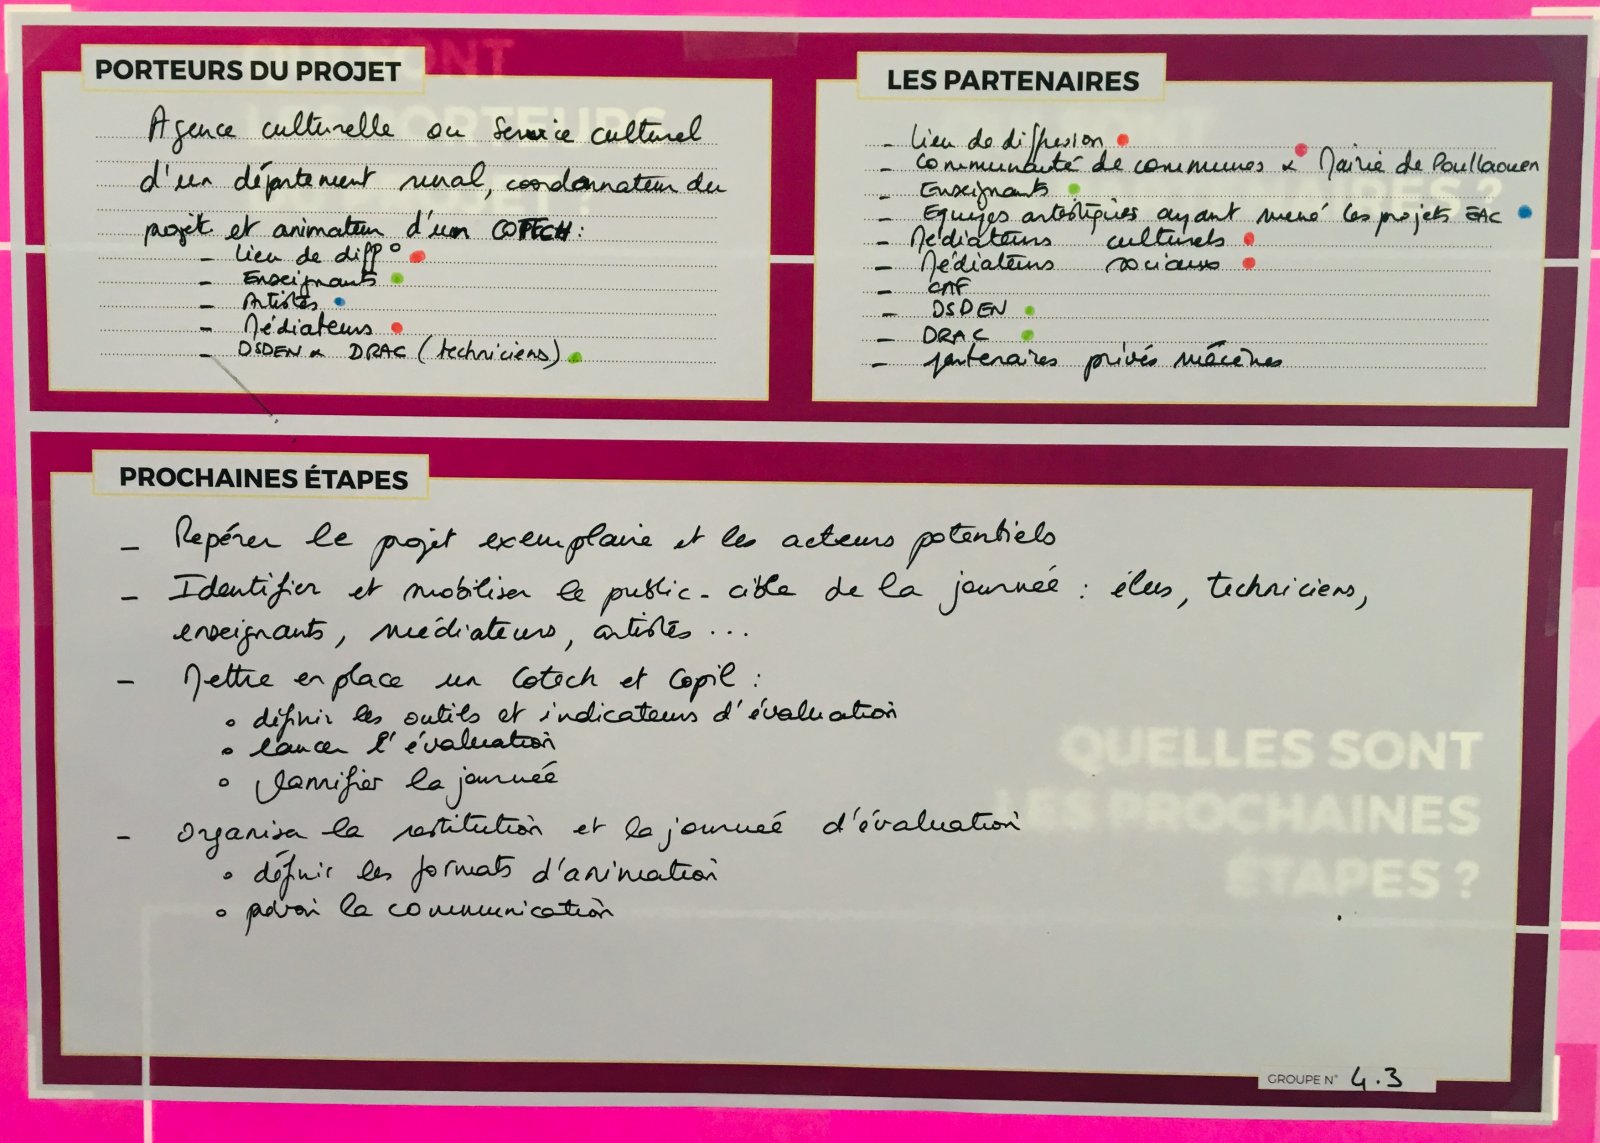 PORTEURS DU PROJET
Agence culturelle ou Service culturel
d'un département rural, coordonnateur du
projet et animateur d'un COTECH :
- Lieu de diff°
- Enseignants
- Artistes
- Médiateurs
- DSDEN & DRAC (techniciens)
LES PARTENAIRES
- Lieu de diffusion
- Communauté de communes & Mairie de Poullaouen
- Enseignants
- Equipes artistiques ayant mené les projets EAC
- Médiateurs culturels
- Médiateurs sociaux
- CAF
- DSDEN
- DRAC
- partenaires privés mécènes
PROCHAINES ÉTAPES
- Repérer le projet exemplaire et les acteurs potentiels
- Identifier et mobiliser le public-cible de la journée : élus, techniciens,
enseignants, médiateurs, artistes ...
- Mettre en place un Cotech et Copil :
o définir les outils et indicateurs d'évaluation
o lancer l'évaluation
o planifier la journée
- Organiser la restitution et la journée d'évaluation
o définir les formats d'animation
o prévoir la communication
QUELLES SONT
LES PROCHAINES
ÉTAPES ?
GROUPE N° 4.3